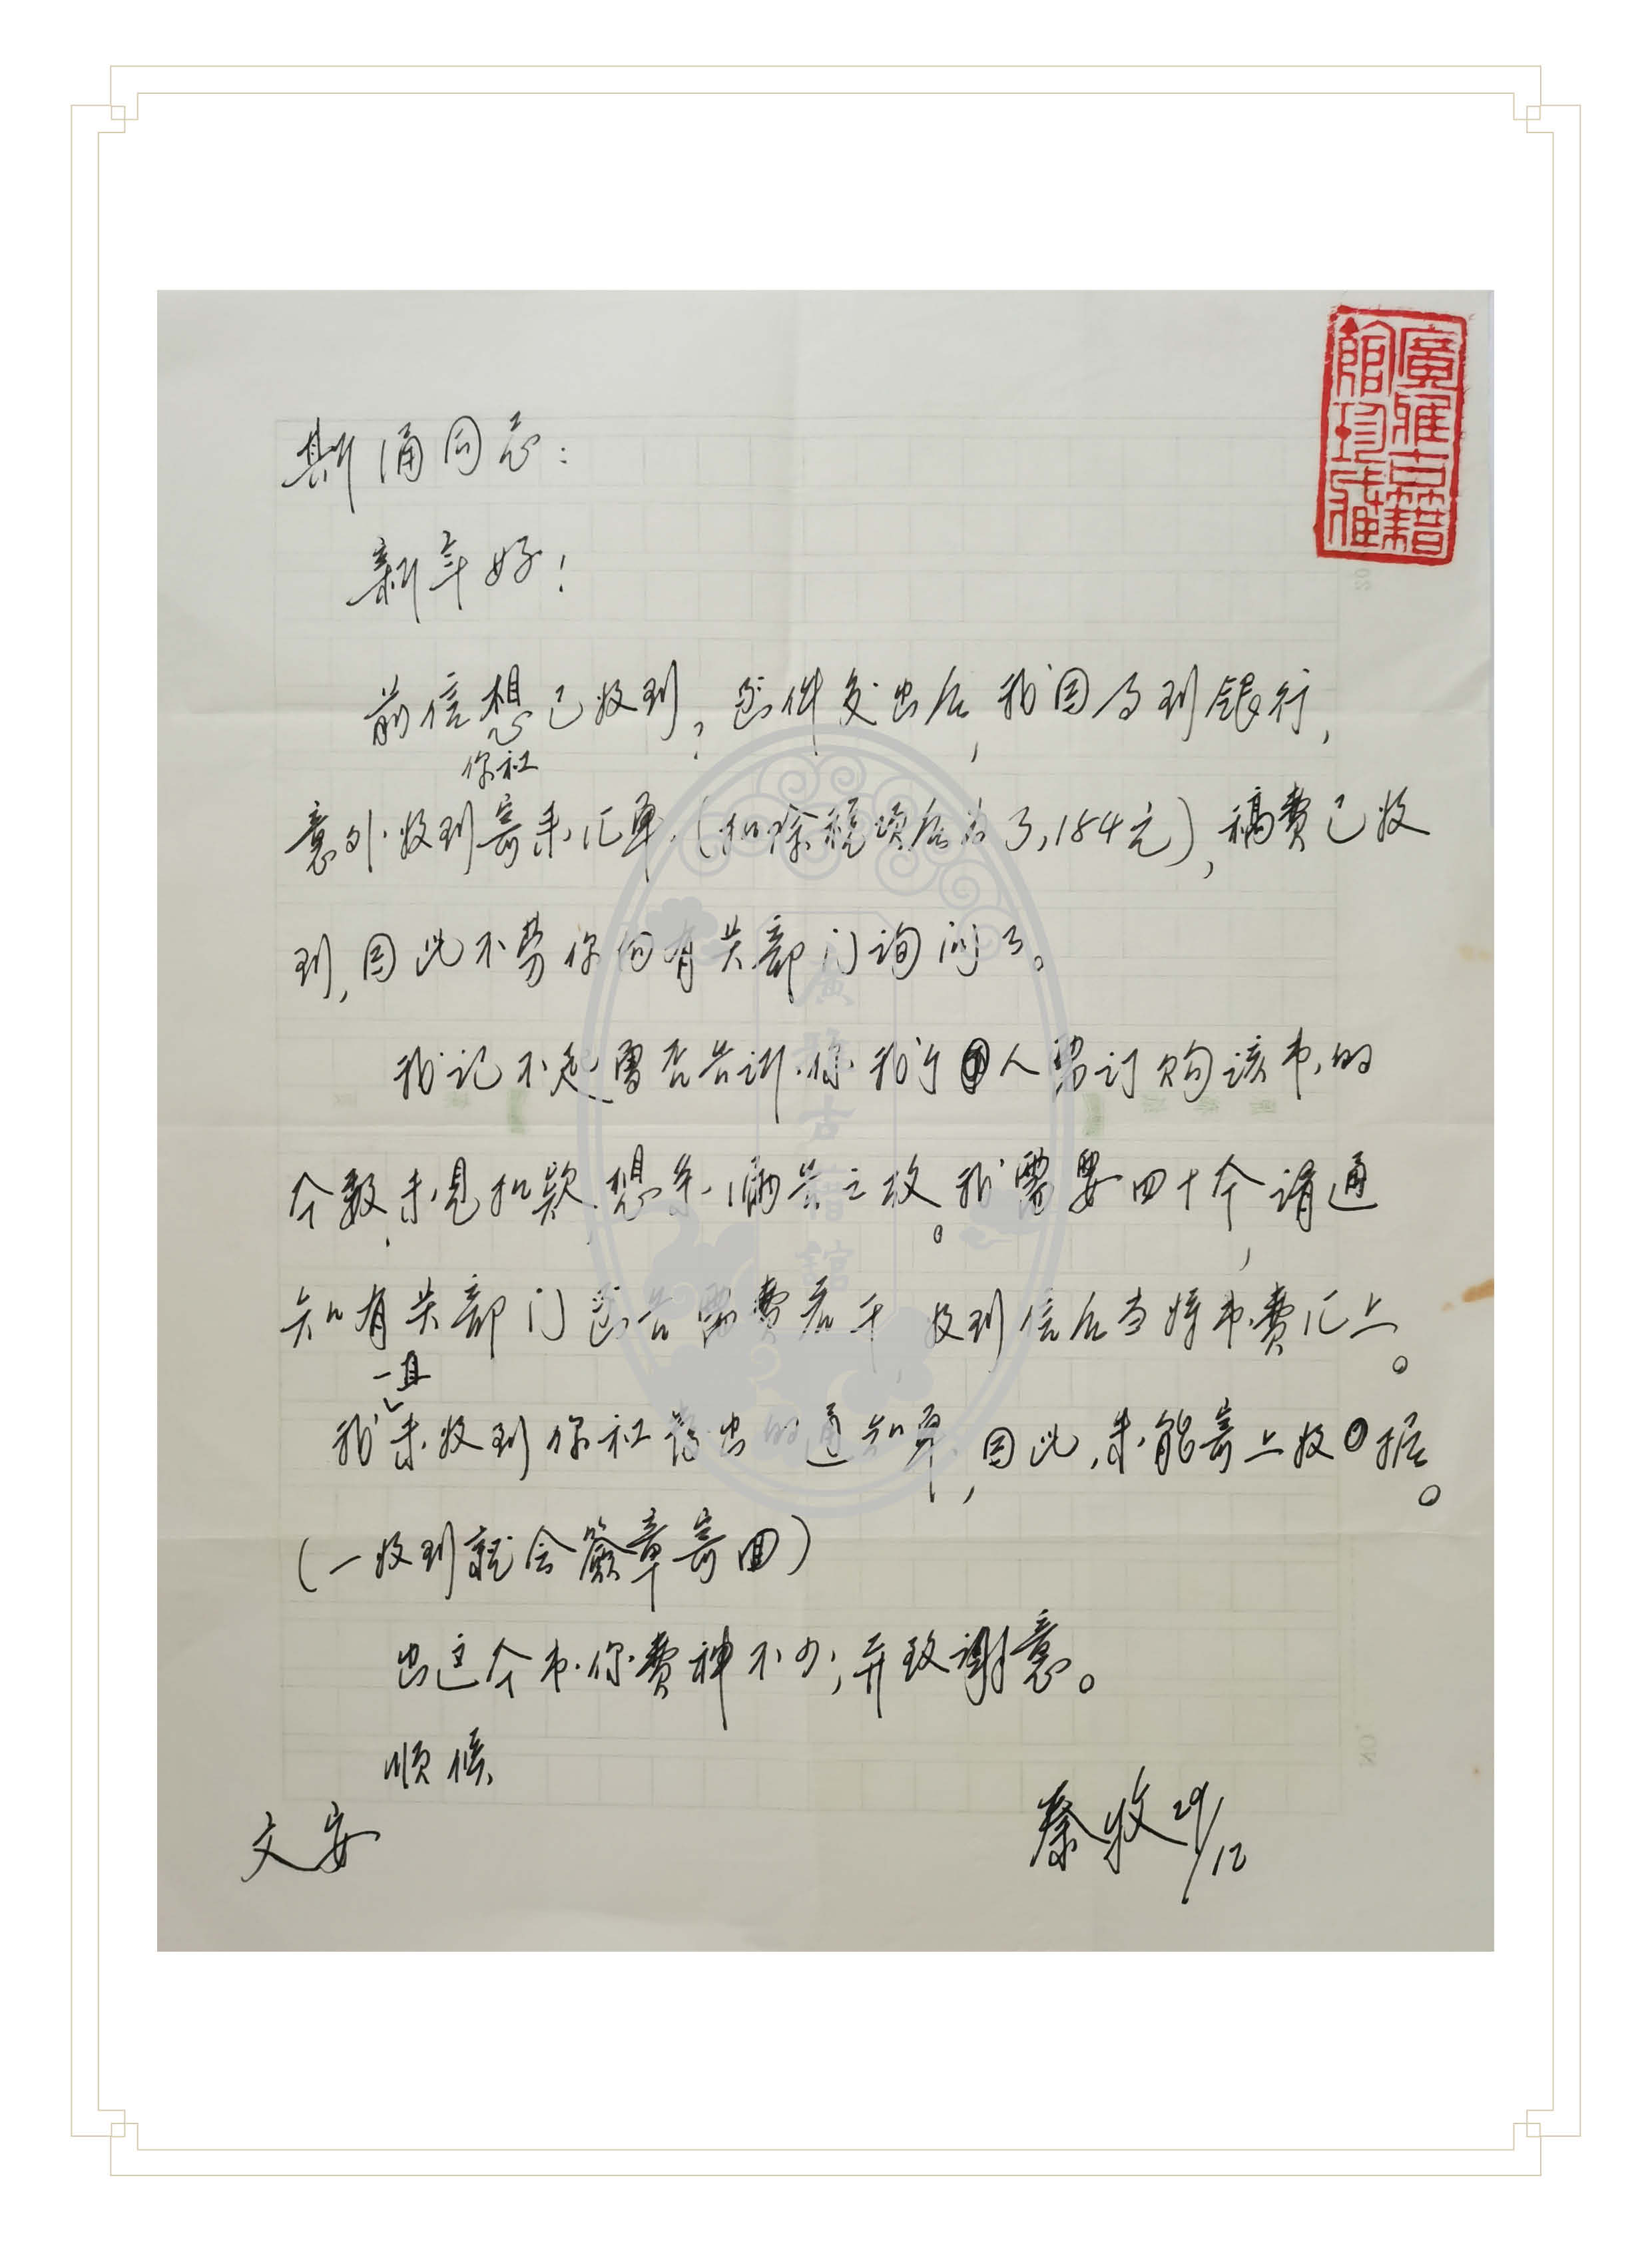 廣雅古籍
館珍雅
斯涌同志：
新年好！
前信想已收到，函件发出后，我因事到银行，
你社
意外收到寄来汇单（扣除税项后为3,184元），稿费已收
到，因此不劳你向有关部门询问了。
我记不起曾否告诉你我个人要订购该书的
个数，未见扣款，想系遗失之故。我需要四十个，请通
知有关部门函告需费若干，收到信后当将书费汇上。
一直
我未收到你社寄出的通知单，因此，未能寄上收据。
（一收到就会签章寄回）
出这个书你费神不少，并致谢意。
顺候
文安
秦牧 29/12
廣雅古籍館